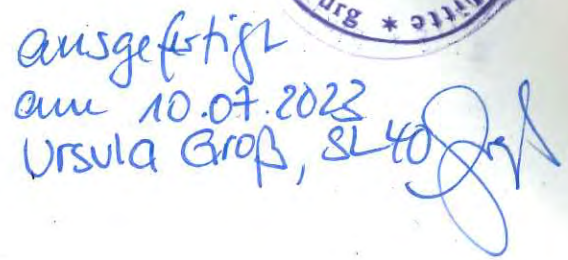 urg *
ausgefertigt
am 10.07.2023
Ursula Groß, SL40